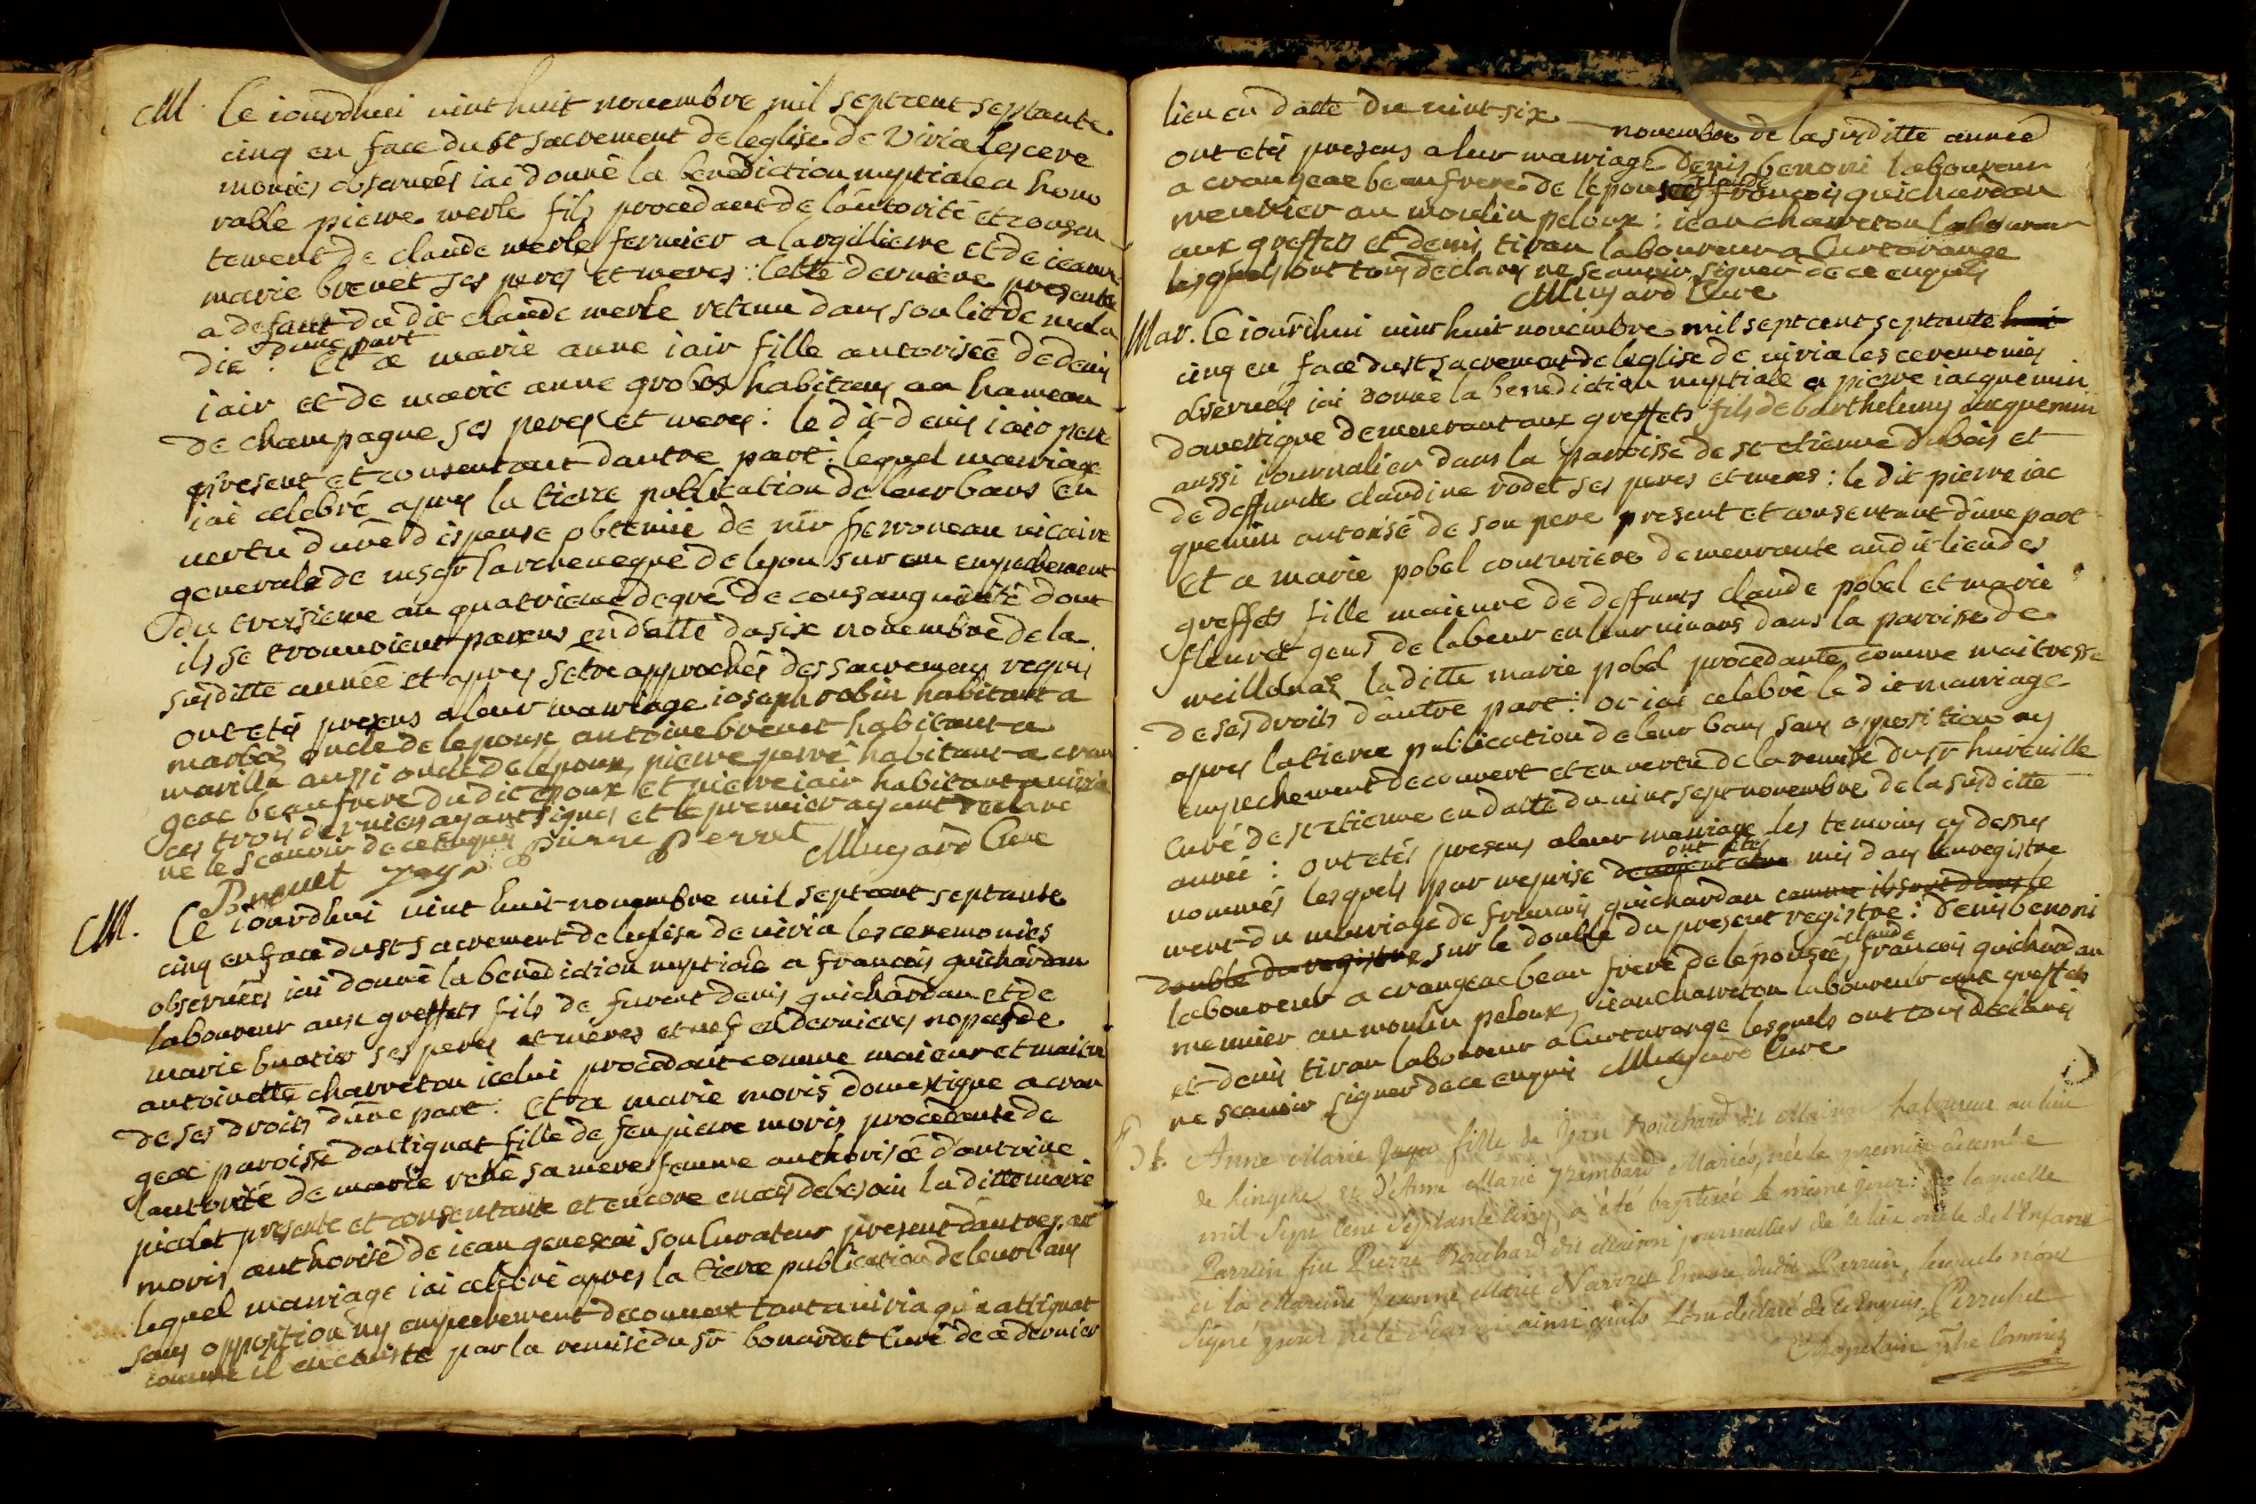 M. Le iourdhui vint huit novembre mil septcent septante
cinq en face du st sacrement de leglise de Viria les cere
monies observées iai donné la benediction nuptiale a hono
rable pierre merle fils procedant de lautorité et consen
tement de claude merle fermier a largilliere et de ieanne
marie brevet ses peres et meres : cette derniere presente
a defaut du dit claude merle retenu dans son lit de mala
dune part
die : Et a marie anne iair fille autorisée de denis
iair et de marie anne grobos habitans au hameau
de champagne ses peres et meres : le dit denis iair pere
present et consentant dautre part : lequel mariage
iai celebré apres la tierce publication de leur bans en
vertu dune dispense obtenüe de mr perroneau vicaire
generale de msgr larcheveque de lyon sur un empechement
du troisieme au quatrieme degré de consanguinité dont
ils se trouvoient parens en datte du six novembre de la
susditte année et apres setre approchés des sacremens requis
ont etés presens a leur mariage ioseph robin habitant a
marboz oncle de lepoux antoine brevet habitant a
marillia aussi oncle de lepoux, pierre perré habitant a cran
geac beaufrere du dit epoux et pierre iair habitant a viria
ces trois derniers ayant signés et le premier ayant declaré
ne le scavoir de ce enquis Pierre Perret
Brevet yayr Muzard Cure
M. Le iourdhui vint huit novembre mil septcent septante
cinq en face du st sacrement de leglise de viria les ceremonies
observées iai donné la benediction nuptiale a francois guichardan
laboureur aux greffets fils de furent denis guichardan et de
marie buatier ses peres et meres et vef en dernieres nopces de
antoinette charreton icelui procedant comme maieur et maitre
de ses droits dune part : Et a marie moris domestique a cran
geac paroisse dattignat fille de feu pierre moris procedante de
lautorité de marie vehé sa mere femme authorisée dantoine
picolet presente et consentante et encore en cas de besoin la ditte marie
moris authorisé de iean genevai son curateur present dautre part
lequel mariage iai celebré apres la tierce publication de leur bans
sans opposition ny empechement decouvert tant a viria qua attignat
comme il en conste par la remise du sr bouvardet curé de ce dernier
lieu en datte du vint six novembre de la susditte année
ont etés presens a leur mariage denis benoni laboureur
a crangeac beaufrere de lepousée claude françois guichardan
meunier au moulin peloux : iean charreton laboureur
aux greffets et denis tiran laboureur a Curtarange
lesquels ont tous declarés ne scavoir signer de ce enquis
Muzard Cure
Mar. Le iourdhui vint huit novembre mil septcent septante
cinq en face du st sacrement de leglise de viria les ceremonies
observées iai donné la benediction nuptiale a pierre iacquemin
domestique demeurant aux greffets fils de barthelemy iacquemin
aussi iournalier dans la paroisse de st etienne dubois et
de deffunte claudine rodet ses peres et meres : le dit pierre iac
quemin autorisé de son pere present et consentant dune part
Et a marie pobel couturiere demeurante audit lieu des
greffets fille maieure de deffunts claude pobel et marie
fleuret gens de labeur en leur vivans dans la paroisse de
meillonas laditte marie pobel procedante comme maitresse
de ses droits dautre part : or iai celebré le dit mariage
apres la tierce publication de leur bans sans opposition ny
empechement decouvert et en vertu de la remise du sr hureville
Curé de st etienne en datte du vint sept novembre de la susditte
année : ont etés presens a leur mariage les temoins cy dessus
nommés lesquels par meprise devoient etre ont etés mis dans lenregistre
ment du mariage de francois guichardan comme ils sont dans le
double du registre sur le double du present registre : denis benoni
laboureur a crangeac beau frere de lépousée, claude francois guichardan
meunier au moulin peloux, iean charreton laboureur aux greffets
et denis tiran laboureur a Curtarange lesquels ont tous declarés
ne scavoir signer de ce enquis Muzard Cure
Bt. Anne Marie fille de Jean Bouchard dit Maison laboureur au lieu
de lingens et d'Anne Marie Mariés, née le premier decembre
mil Sept Cent Septante Cinq a été baptisée le même jour : de laquelle
Parrain fut Pierre Bouchard dit Maison journallier de ce lieu oncle de l'Enfant
et la Maraine Jeanne Marie du dit Parrain, lesquels n'ont
Signé pour ne le Scavoir ainsi quils L'ont declaré de ce Enquis Perruquet
Chapelain ptre Commis